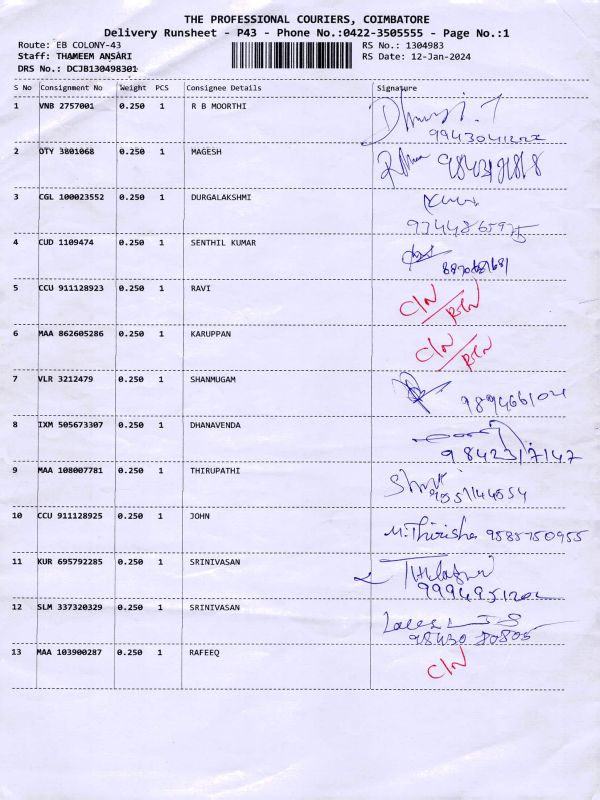 THE PROFESSIONAL COURIERS, COIMBATORE
Delivery Runsheet - P43 - Phone No.:0422-3505555 - Page No.:1
Route: EB COLONY-43 RS No.: 1304983
Staff: THAMEEM ANSARI RS Date: 12-Jan-2024
DRS No.: DCJB130498301
S No Consignment No Weight PCS Consignee Details Signature
1 VNB 2757001 0.250 1 R B MOORTHI
2 DTY 3801068 0.250 1 MAGESH
3 CGL 100023552 0.250 1 DURGALAKSHMI
4 CUD 1109474 0.250 1 SENTHIL KUMAR
5 CCU 911128923 0.250 1 RAVI C/N
6 MAA 862605286 0.250 1 KARUPPAN C/N
7 VLR 3212479 0.250 1 SHANMUGAM
8 IXM 505673307 0.250 1 DHANAVENDA 9842317147
9 MAA 108007781 0.250 1 THIRUPATHI
10 CCU 911128925 0.250 1 JOHN M.Thirisha 9585750955
11 KUR 695792285 0.250 1 SRINIVASAN
12 SLM 337320329 0.250 1 SRINIVASAN
98430 80805
13 MAA 103900287 0.250 1 RAFEEQ C/N